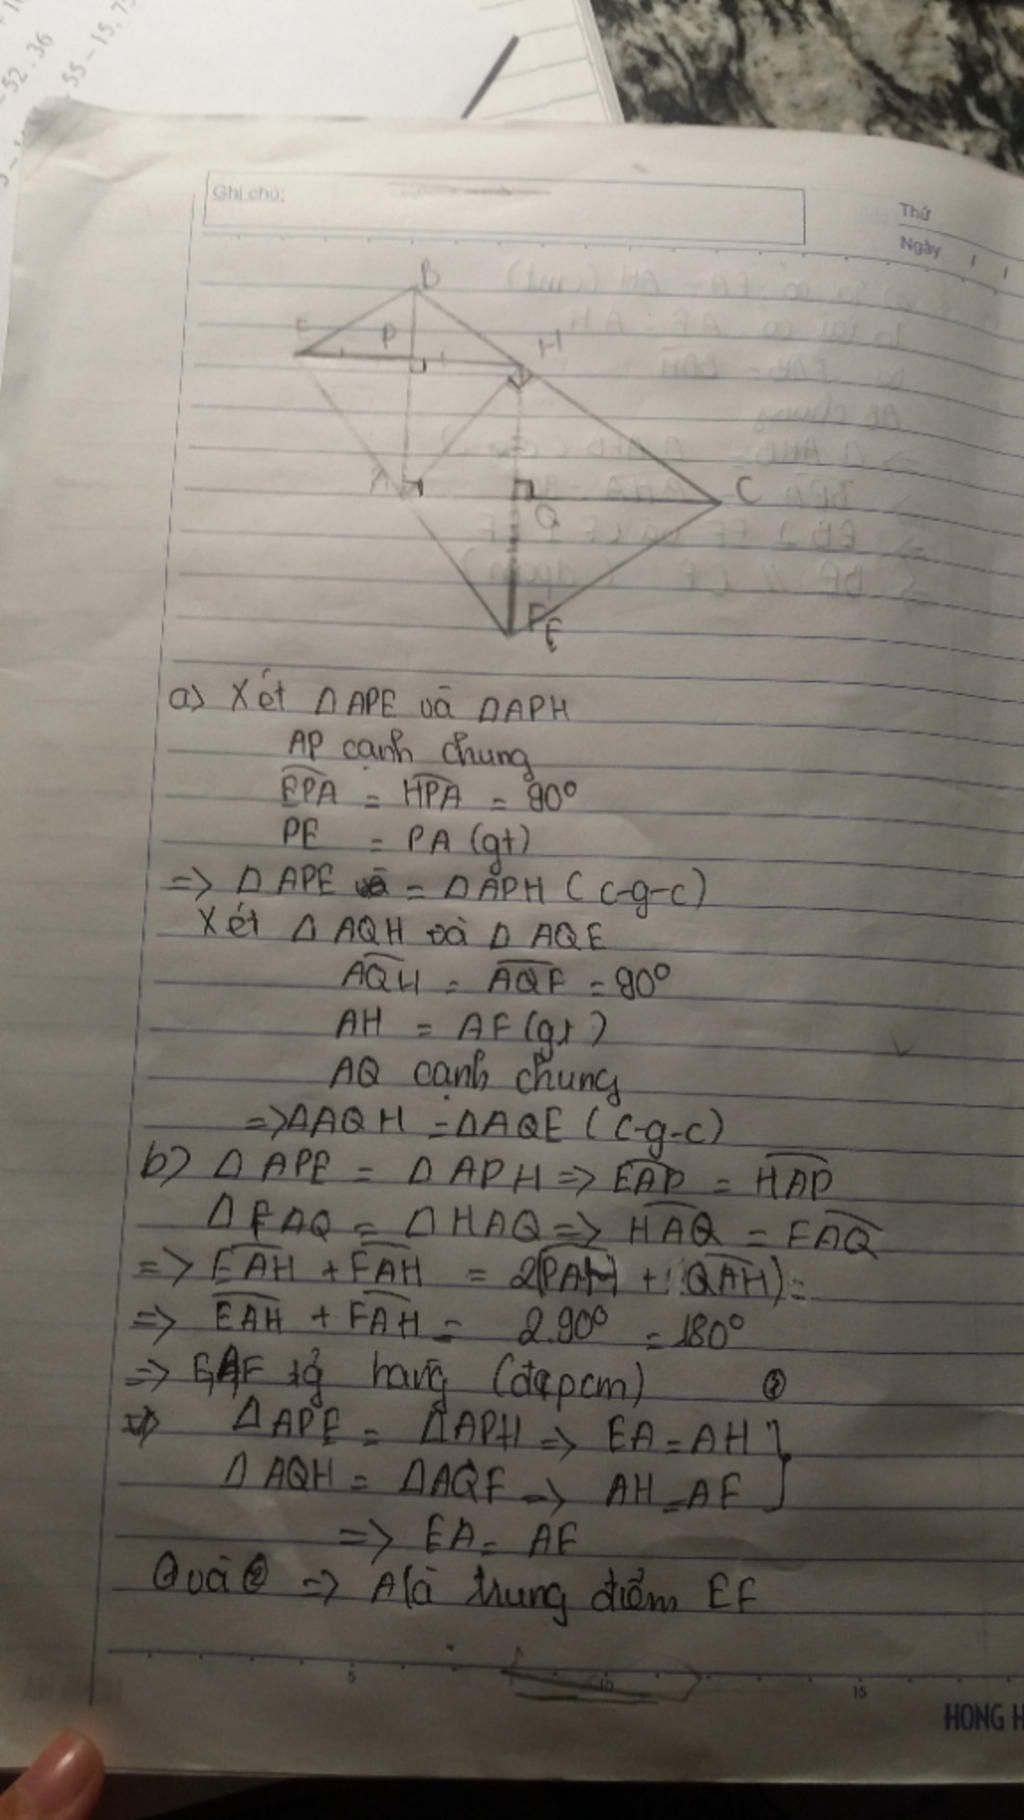 52.36
55-15,7
Ghi chú:
Thứ
Ngày
B
E
P
H
A
C
Q
F
a) Xét Δ APE và ΔAPH
AP cạnh chung
EPA = HPA = 90°
PE = PA (gt)
=> Δ APE = ΔAPH (c-g-c)
Xét Δ AQH và Δ AQE
AQH = AQF = 90°
AH = AF (gt)
AQ cạnh chung
=> ΔAQH = ΔAQE (c-g-c)
b) Δ APE = Δ APH => EAP = HAP
Δ FAQ = Δ HAQ => HAQ = FAQ
=> EAH + FAH = 2(PAH + QAH) =
=> EAH + FAH = 2.90° = 180°
=> E,A,F tg hang (đapcm) ②
Δ APE = Δ APH => EA = AH }
Δ AQH = Δ AQF => AH = AF
=> EA = AF
② => A là trung điểm EF
5
10
15
HONG H